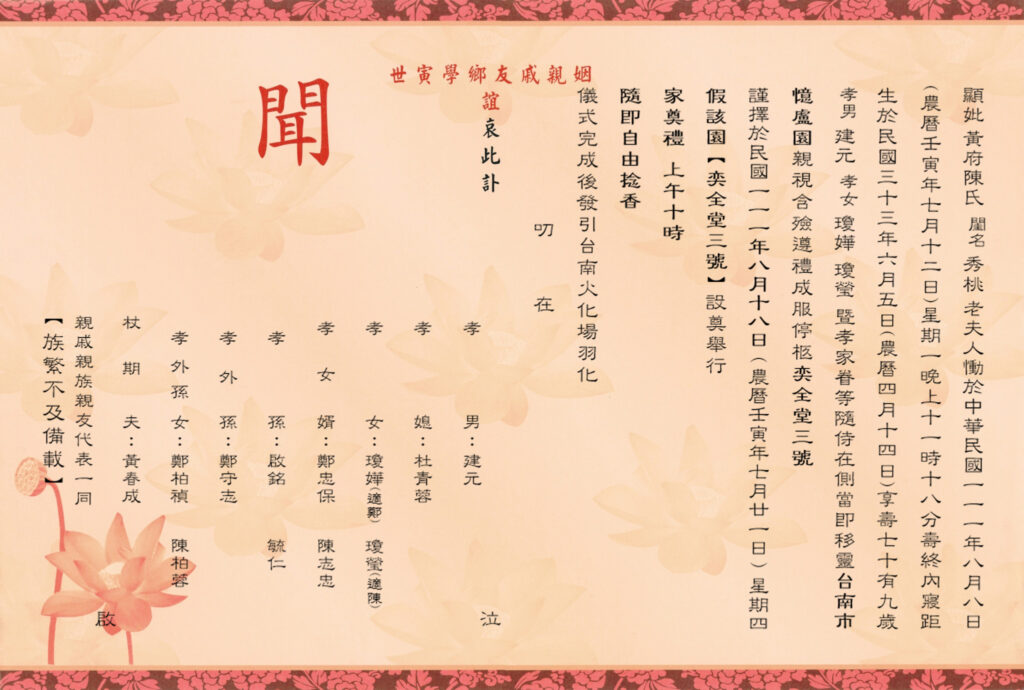 顯妣 黃府陳氏 閨名 秀桃 老夫人慟於中華民國一一一年八月八日
(農曆壬寅年七月十二日)星期一晚上十一時十八分壽終內寢距
生於民國三十三年六月五日(農曆四月十四日)享壽七十有九歲
孝男 建元 孝女 瓊嬅 瓊瑩 暨孝家眷等隨侍在側當即移靈台南市
憶盧園親視含殮遵禮成服停柩奕全堂三號
謹擇於民國一一一年八月十八日(農曆壬寅年七月廿一日)星期四
假該園【奕全堂三號】設奠舉行
家奠禮 上午十時
隨即自由捻香
儀式完成後發引台南火化場羽化
叨在
姻親戚友鄉學寅世
誼哀此訃
聞
孝男:建元
孝媳:杜青蓉
孝女:瓊嬅(適鄭) 瓊瑩(適陳)
孝女婿:鄭忠保 陳志忠
孝孫:啟銘 毓仁
孝外孫:鄭守志
孝外孫女:鄭柏禎 陳柏蓉
杖期夫:黃春成
親戚親族親友代表一同
【族繁不及備載】
泣
啟